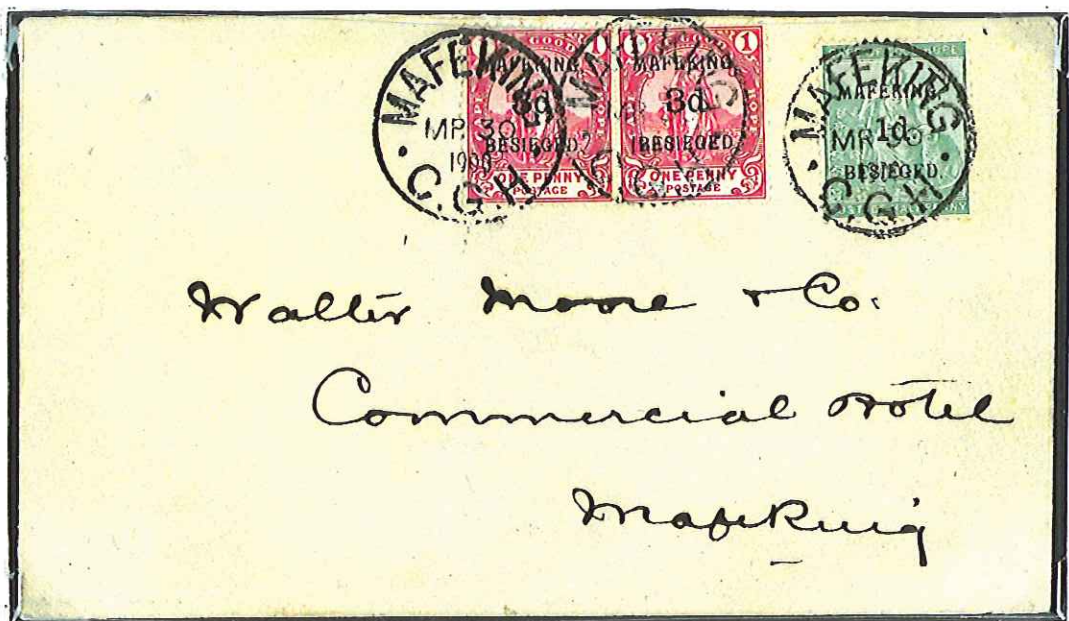 MAFEKING
MR 30
1900
C.G.H
GOOD
1
MAFEKING
3d.
BESIEGED.
ONE PENNY
POSTAGE
GOOD
1
MAFEKING
3d.
BESIEGED.
ONE PENNY
POSTAGE
MAFEKING
MAFEKING
MR 30
C.G.H
MAFEKING
1d.
BESIEGED.
Walter Moore & Co:
Commercial Hotel
Mafeking